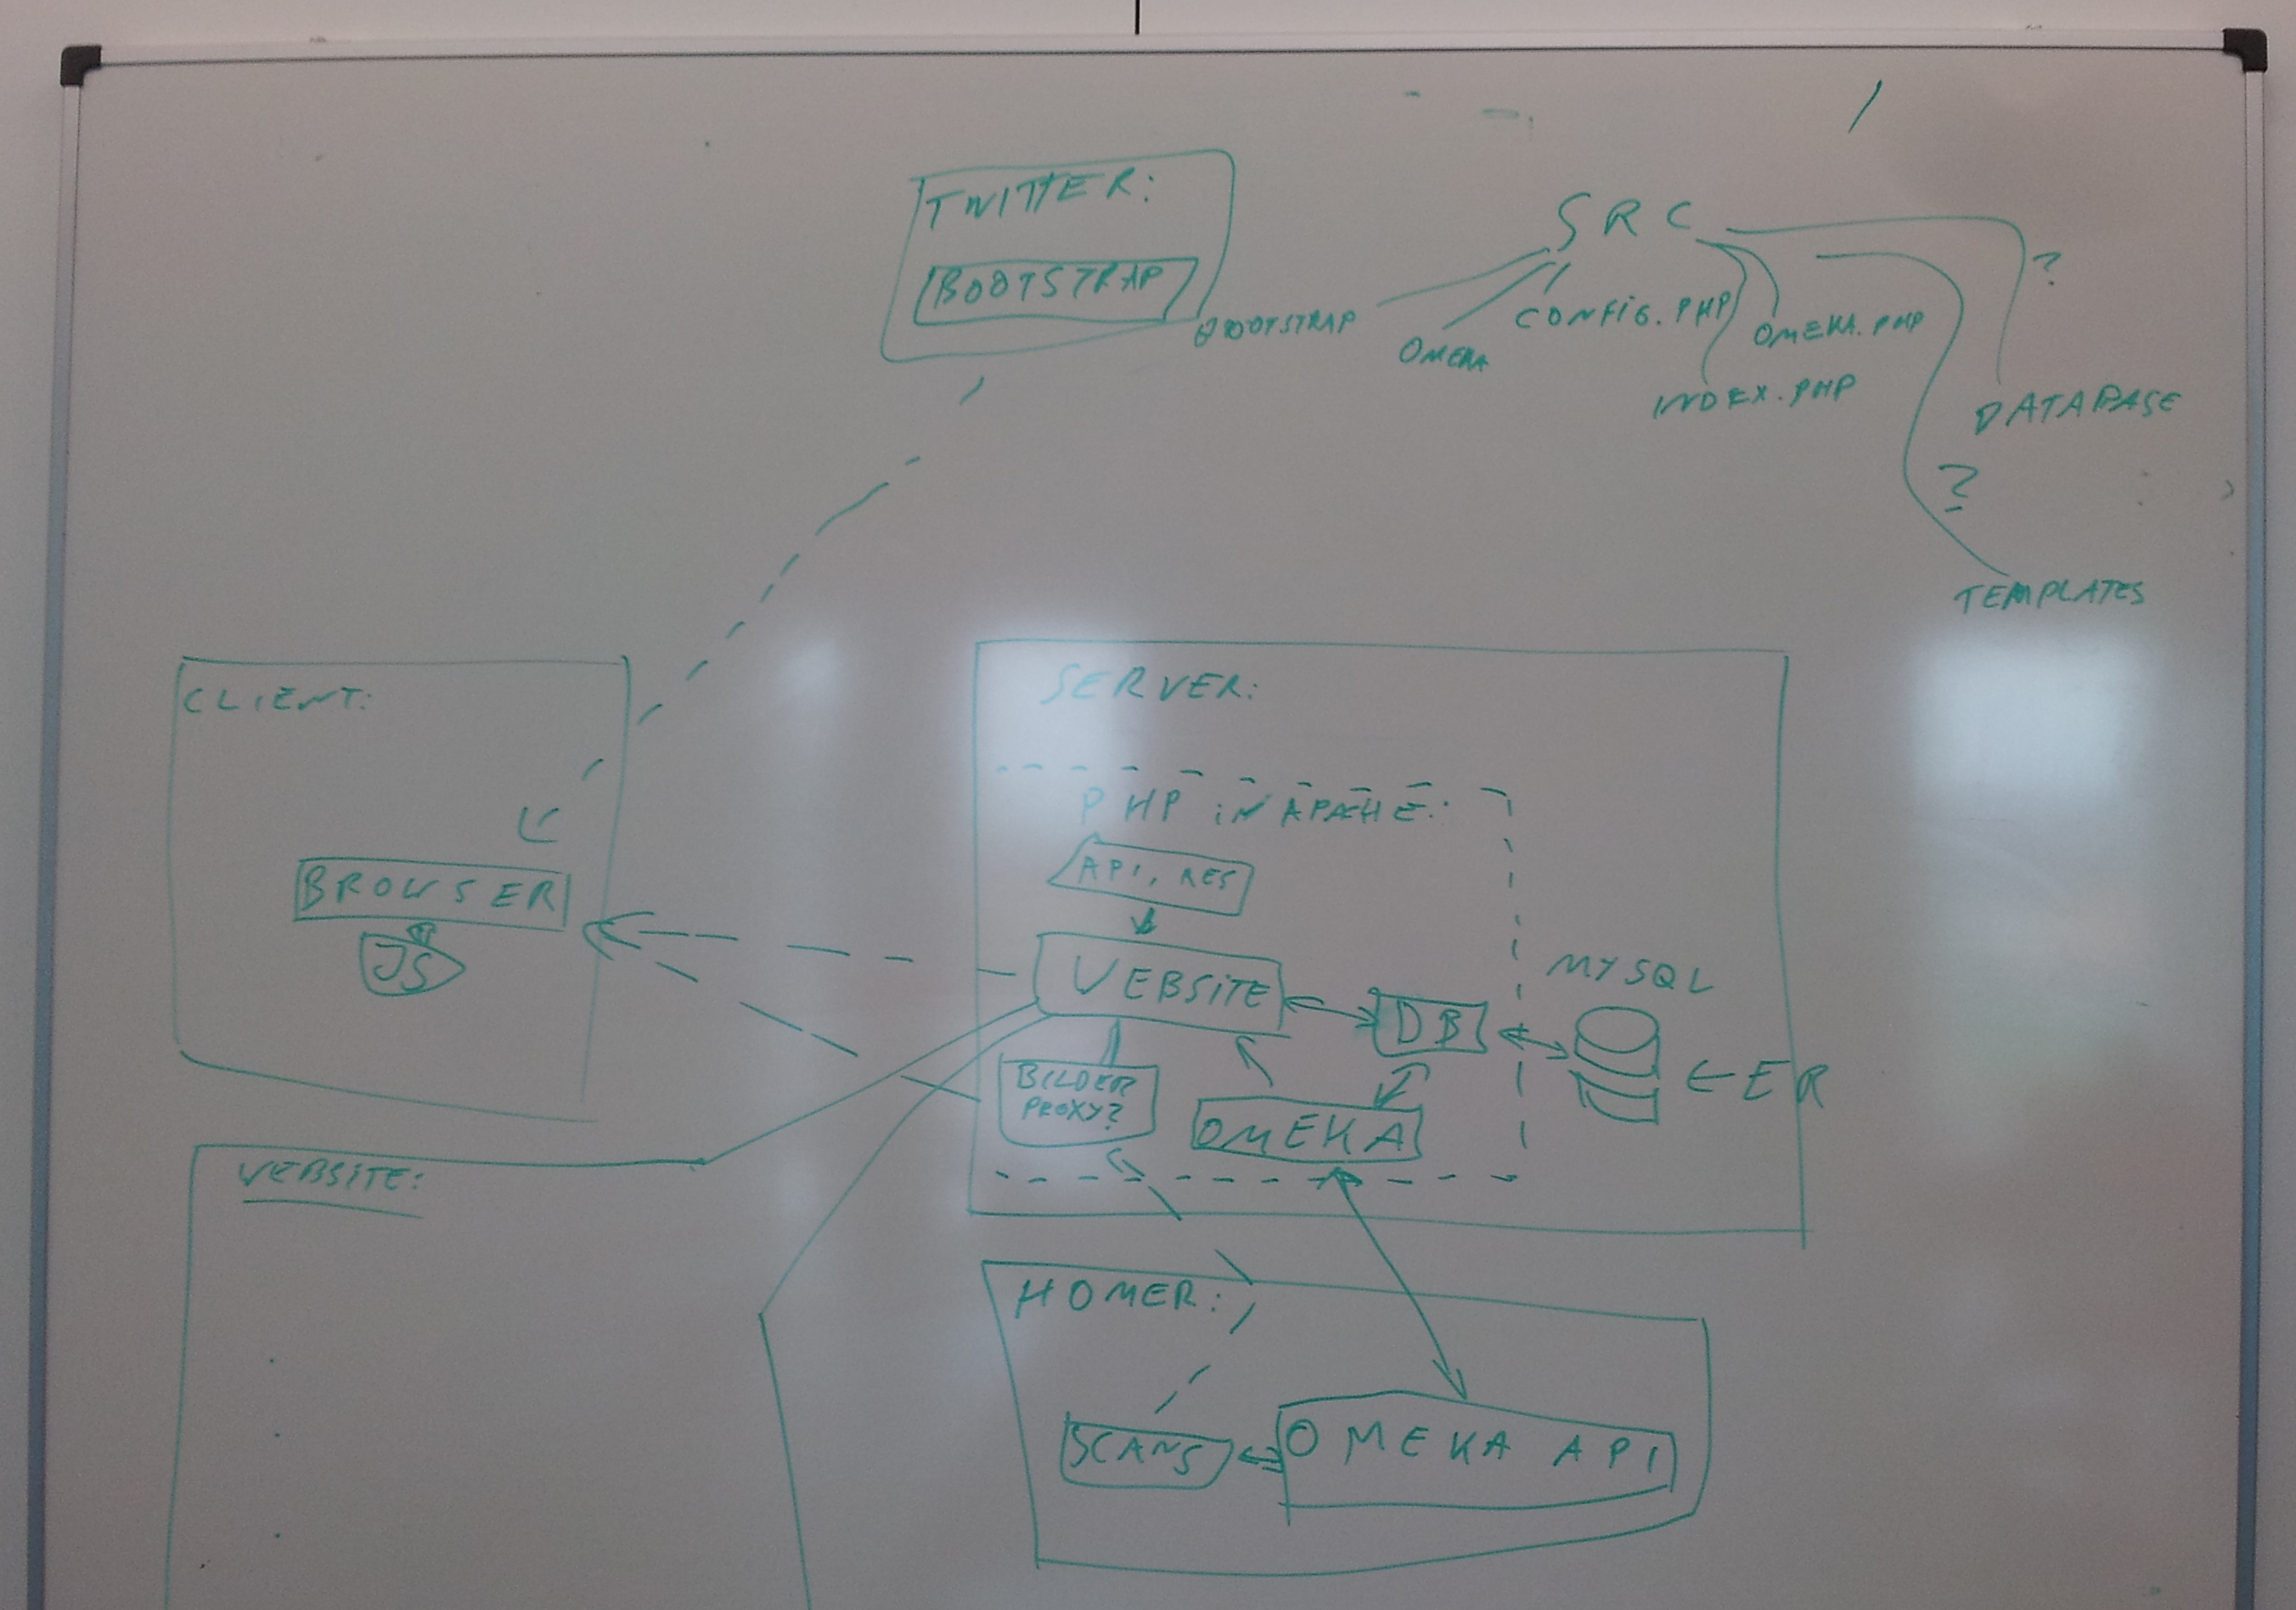 TWITTER:
BOOTSTRAP
SRC
?
BOOTSTRAP
OMEKA
CONFIG.PHP
OMEKA.PHP
INDEX.PHP
DATABASE
?
TEMPLATES
CLIENT:
BROWSER
JS
SERVER:
PHP IN APACHE:
API, RES
WEBSITE
DB
MYSQL
← ER
BILDER
PROXY?
OMEKA
WEBSITE:
HOMER:
SCANS
OMEKA API